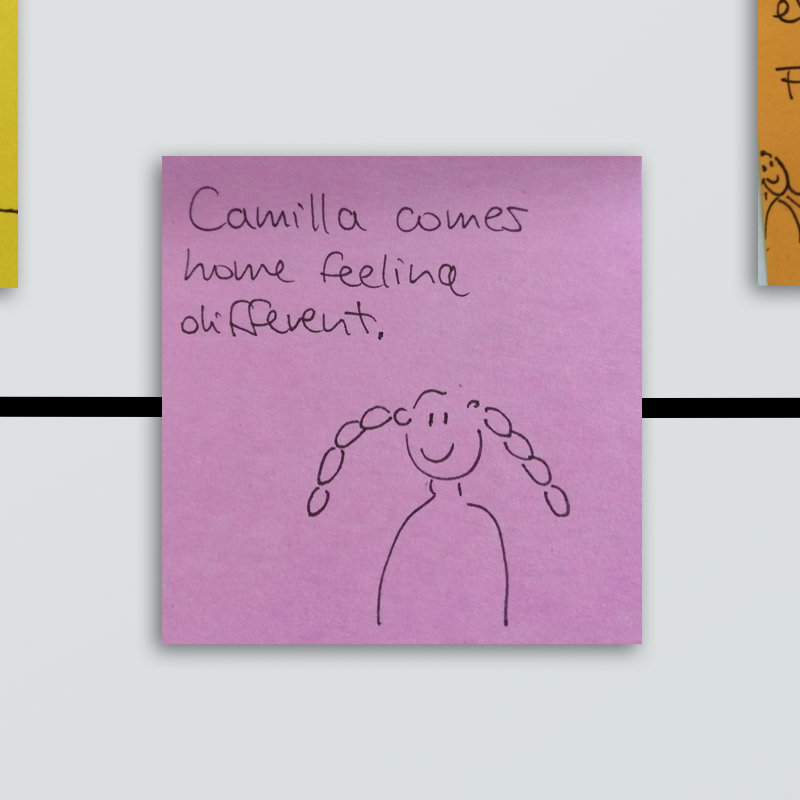 Camilla comes
home feeling
different.